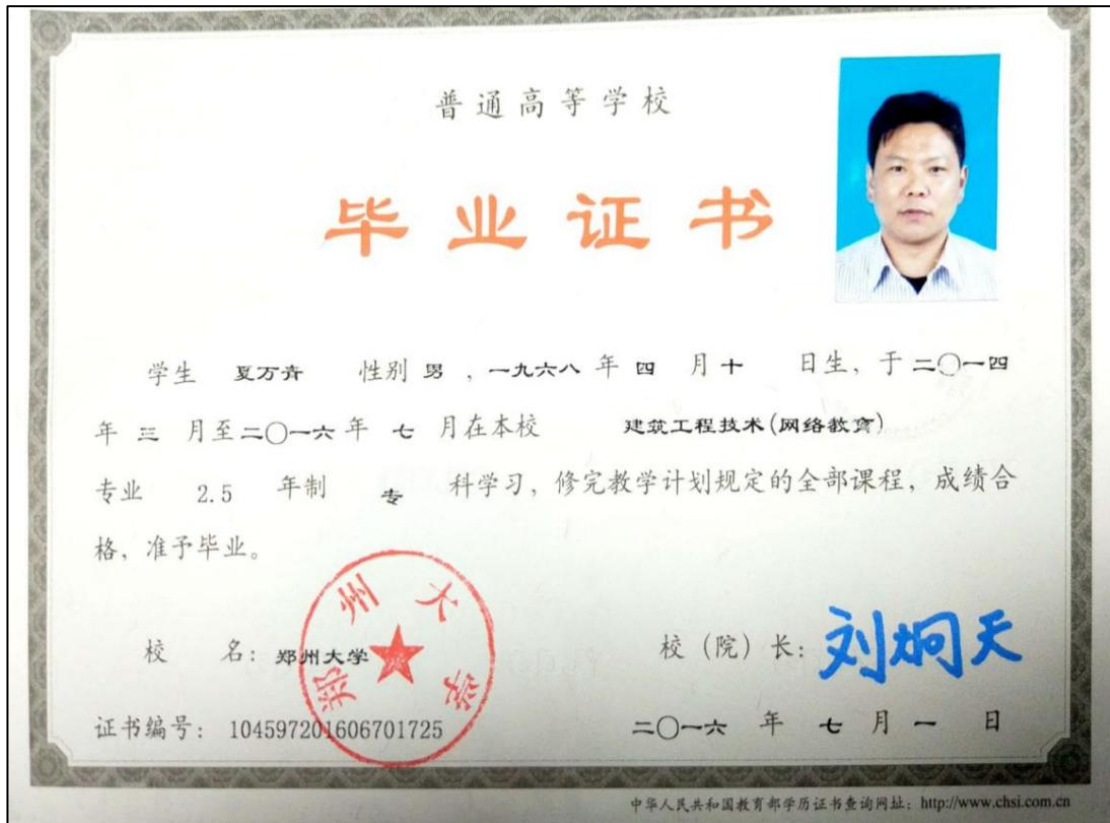 普通高等学校
毕业证书
学生 夏万青 性别 男 ，一九六八 年 四 月 十 日生，于 二〇一四
年 三 月至 二〇一六 年 七 月在本校 建筑工程技术(网络教育)
专业 2.5 年制 专 科学习，修完教学计划规定的全部课程，成绩合
格，准予毕业。
郑州大学
校 名：郑州大学
校（院）长：刘炯天
证书编号：104597201606701725
二〇一六 年 七 月 一 日
中华人民共和国教育部学历证书查询网址：http://www.chsi.com.cn